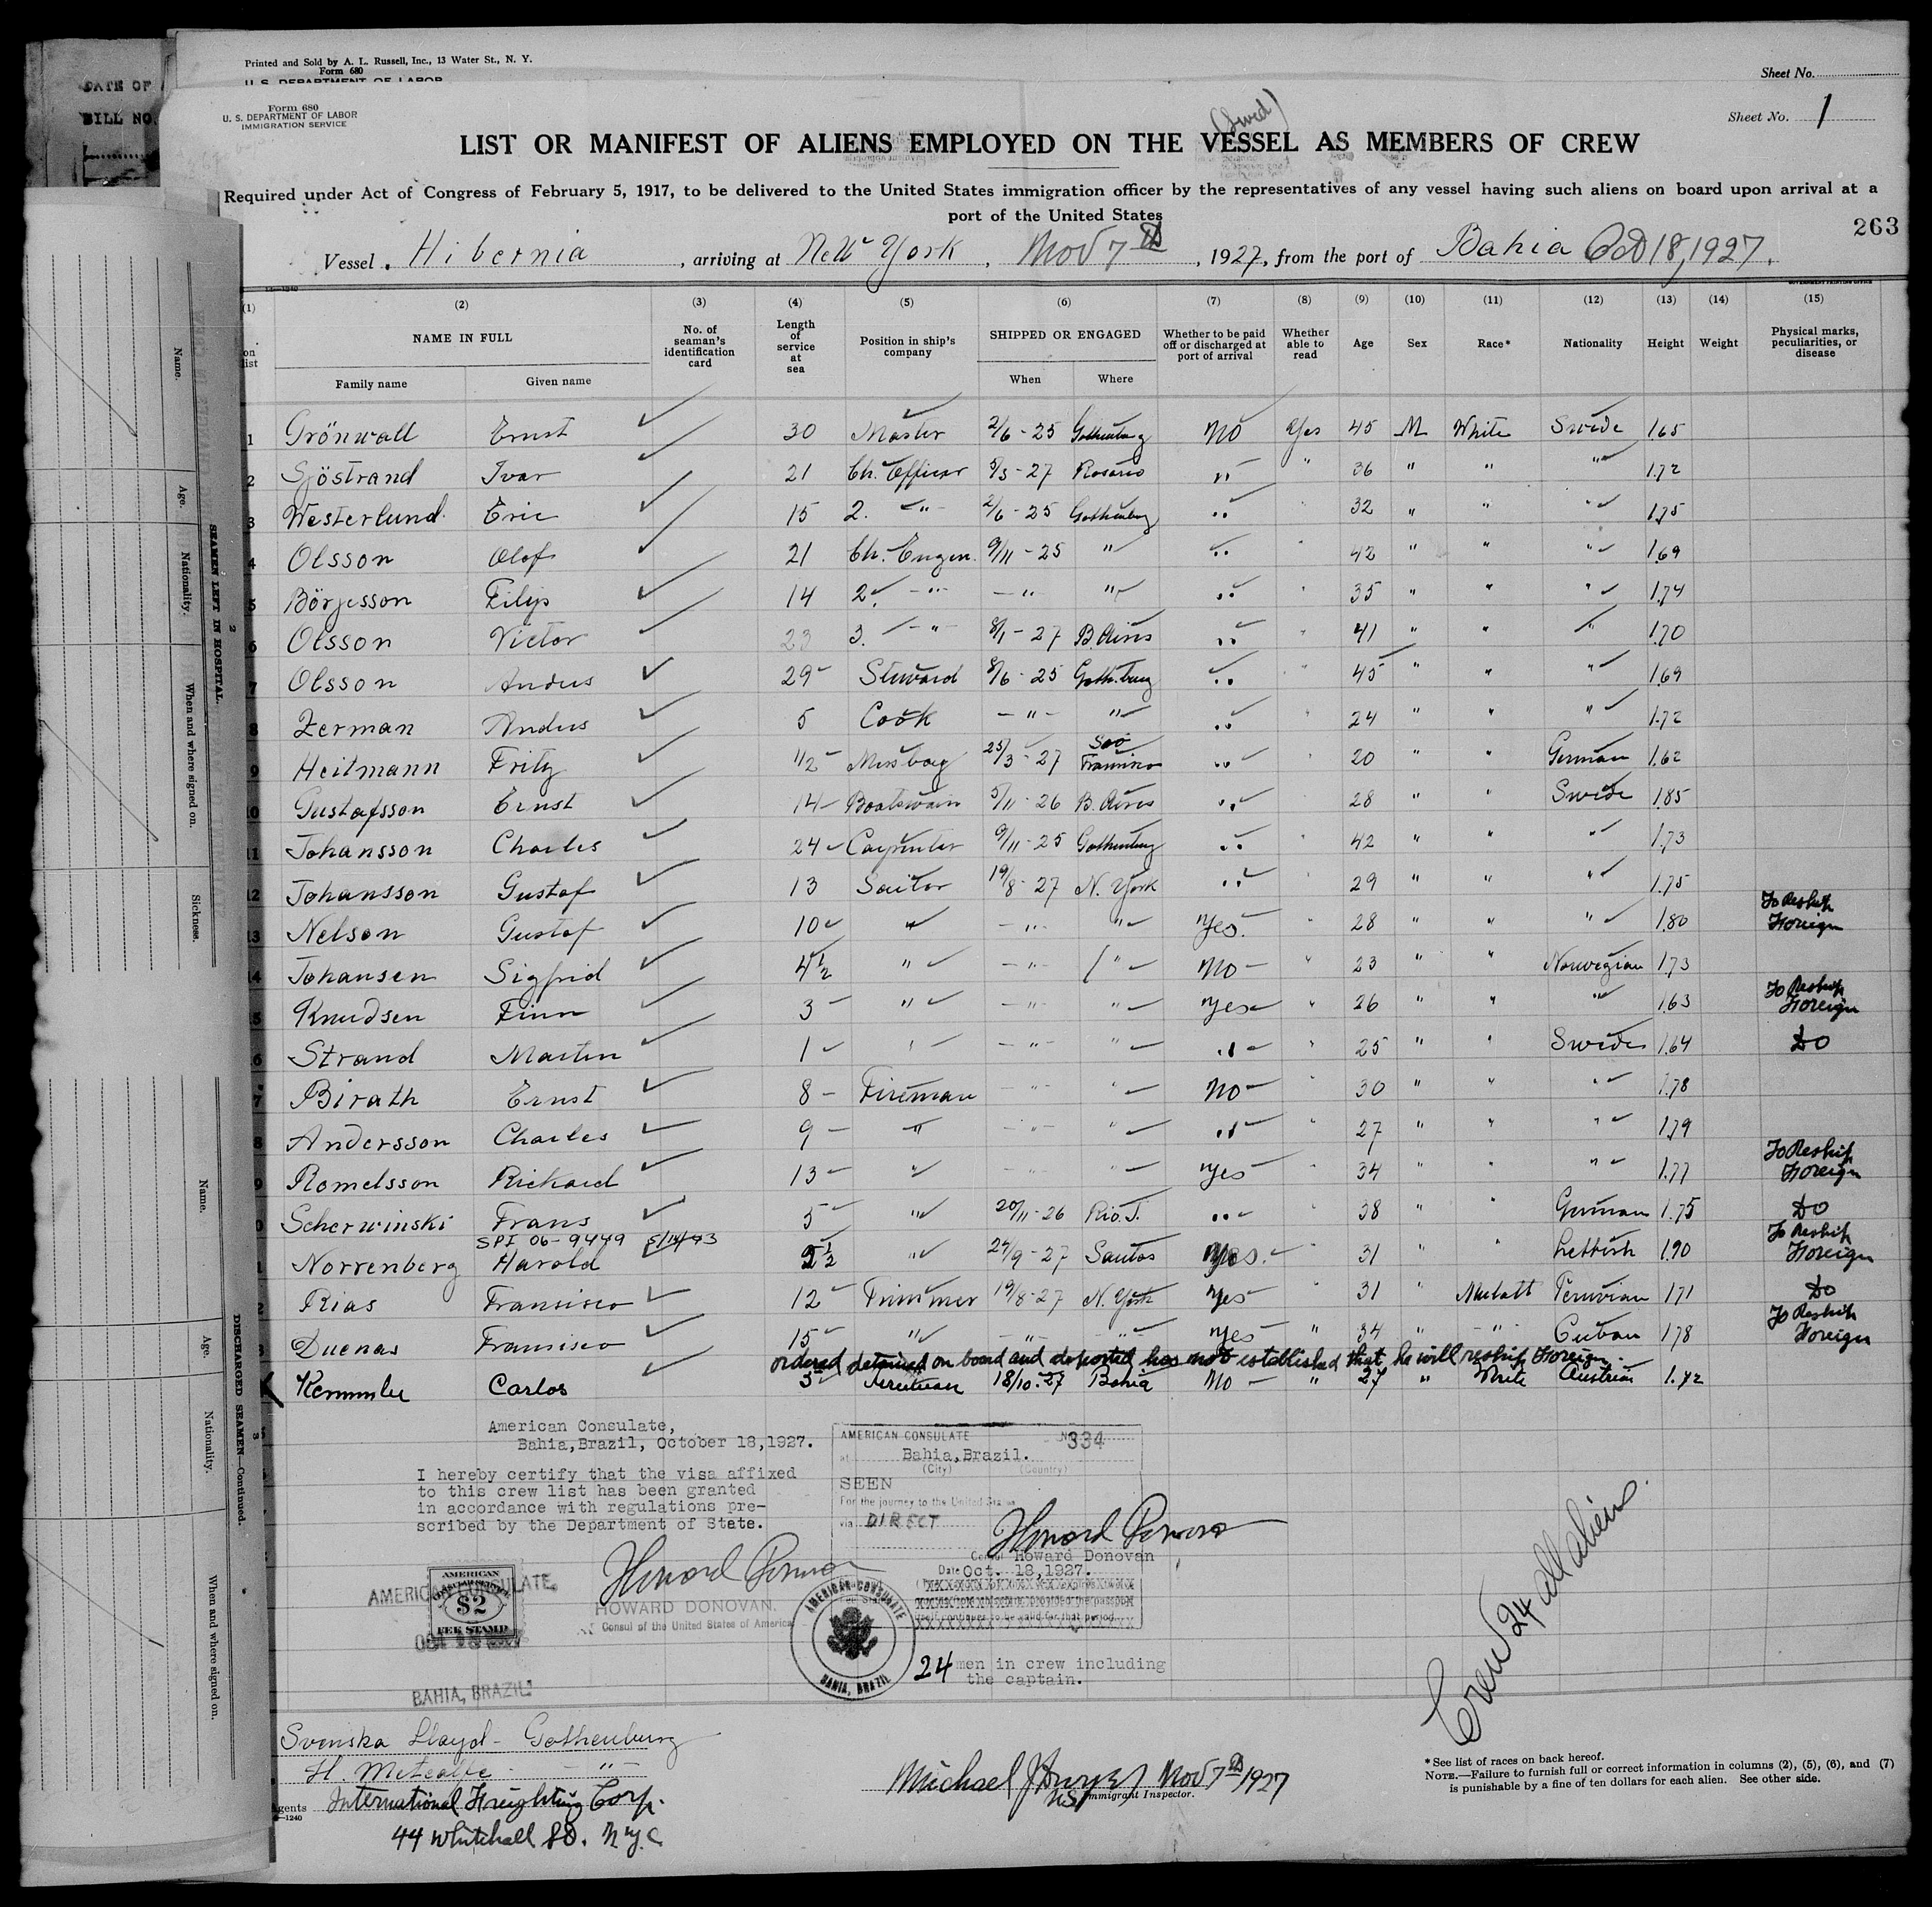 Printed and Sold by A. L. Russell, Inc., 13 Water St., N. Y.
Form 680
U. S. DEPARTMENT OF LABOR
Sheet No.
DATE OF
BILL NO.
Form 680
U. S. DEPARTMENT OF LABOR
IMMIGRATION SERVICE
(Swed)
Sheet No. 1
LIST OR MANIFEST OF ALIENS EMPLOYED ON THE VESSEL AS MEMBERS OF CREW
Required under Act of Congress of February 5, 1917, to be delivered to the United States immigration officer by the representatives of any vessel having such aliens on board upon arrival at a
port of the United States
263
Vessel Hibernia, arriving at New York, Nov 7th, 1927, from the port of Bahia Oct 18, 1927.
(1) (2) (3) (4) (5) (6) (7) (8) (9) (10) (11) (12) (13) (14) (15)
on list NAME IN FULL No. of seaman's identification card Length of service at sea Position in ship's company SHIPPED OR ENGAGED Whether to be paid off or discharged at port of arrival Whether able to read Age Sex Race* Nationality Height Weight Physical marks, peculiarities, or disease
Family name Given name When Where
1 Grönwall Ernst 30 Master 2/6-25 Gothenburg No Yes 45 M White Swede 1.65
2 Sjöstrand Ivar 21 Ch. Officer 5/3-27 Rosario " " 36 " " " 1.72
3 Westerlund Eric 15 2. -"- 2/6-25 Gothenburg " 32 " " " 1.75
4 Olsson Olof 21 Ch. Engin. 9/11-25 " " " 42 " " " 1.69
5 Börjesson Filip 14 2. -"- -"- " " " 35 " " " 1.74
6 Olsson Victor 23 3. -"- 8/1-27 B. Aires " " 41 " " " 1.70
7 Olsson Andus 29 Steward 8/6-25 Gothenburg " " 45 " " " 1.69
8 Zerman Andus 5 Cook -"- " " " 24 " " " 1.72
9 Heitmann Fritz 1/2 Messboy 25/3-27 Sao Francisco " 20 " " German 1.62
10 Gustafsson Ernst 14 Boatswain 5/11-26 B. Aires " " 28 " " Swede 1.85
11 Johansson Charles 24 Carpenter 9/11-25 Gothenburg " " 42 " " " 1.73
12 Johansson Gustaf 13 Sailor 19/8-27 N. York " " 29 " " " 1.75
13 Nelson Gustaf 10 " -"- " Yes. " 28 " " " 1.80 To Reship Foreign
14 Johansen Sigfrid 4 1/2 " -"- " No " 23 " " Norwegian 1.73
15 Knudsen Finn 3 " -"- " Yes " 26 " " " 1.63 To Reship Foreign
16 Strand Martin 1 " -"- " " " 25 " " Swede 1.64 Do
17 Birath Ernst 8 Fireman -"- " No " 30 " " " 1.78
18 Andersson Charles 9 " -"- " " " 27 " " " 1.79
19 Romelsson Rickard 13 " -"- " Yes " 34 " " " 1.77 To Reship Foreign
20 Scherwinski Frans 5 " 20/11-26 Rio. J. " " 38 " " German 1.75 Do
SPI 06-9449
21 Norrenberg Harold 2 1/2 " 24/9-27 Santos Yes. " 31 " " Lettish 1.90 To Reship Foreign
22 Rias Fransisco 12 Trimmer 19/8-27 N. York Yes " 31 " Mulatt Peruvian 1.71 Do
23 Duenas Fransisco 15 " -"- " Yes " 34 " -"- Cuban 1.78 To Reship Foreign
ordered detained on board and deported has not established that he will reship Foreign.
Kemmler Carlos 3 18/10-27 Bahia No " 27 " White Austrian 1.72
American Consulate,
Bahia, Brazil, October 18, 1927.
I hereby certify that the visa affixed
to this crew list has been granted
in accordance with regulations pre-
scribed by the Department of State.
AMERICAN CONSULATE No 334
at Bahia, Brazil.
(City) (Country)
SEEN
For the journey to the United States
via DIRECT
Howard Donovan
Consul Howard Donovan
Date Oct. 18, 1927.
Howard Donovan
HOWARD DONOVAN.
Consul of the United States of America
AMERICAN CONSULATE,
AMERICAN
CONSULAR SERVICE
$2
FEE STAMP
OCT 18 1927
BAHIA, BRAZIL
AMERICAN CONSULATE
BAHIA, BRAZIL
24 men in crew including
the captain.
Crew 24 all aliens.
Svenska Lloyd - Gothenburg
H Metcalfe -"-
Agents International Freighting Corp.
44 Whitehall St. N.Y.C
Michael J Dwyer Nov 7th 1927
Immigrant Inspector.
* See list of races on back hereof.
NOTE.—Failure to furnish full or correct information in columns (2), (5), (6), and (7)
is punishable by a fine of ten dollars for each alien. See other side.
Name.
Age.
Nationality.
When and where signed on.
Sickness.
SEAMEN LEFT IN HOSPITAL.
2
Name.
Age.
Nationality.
When and where signed on.
DISCHARGED SEAMEN—Continued.
3